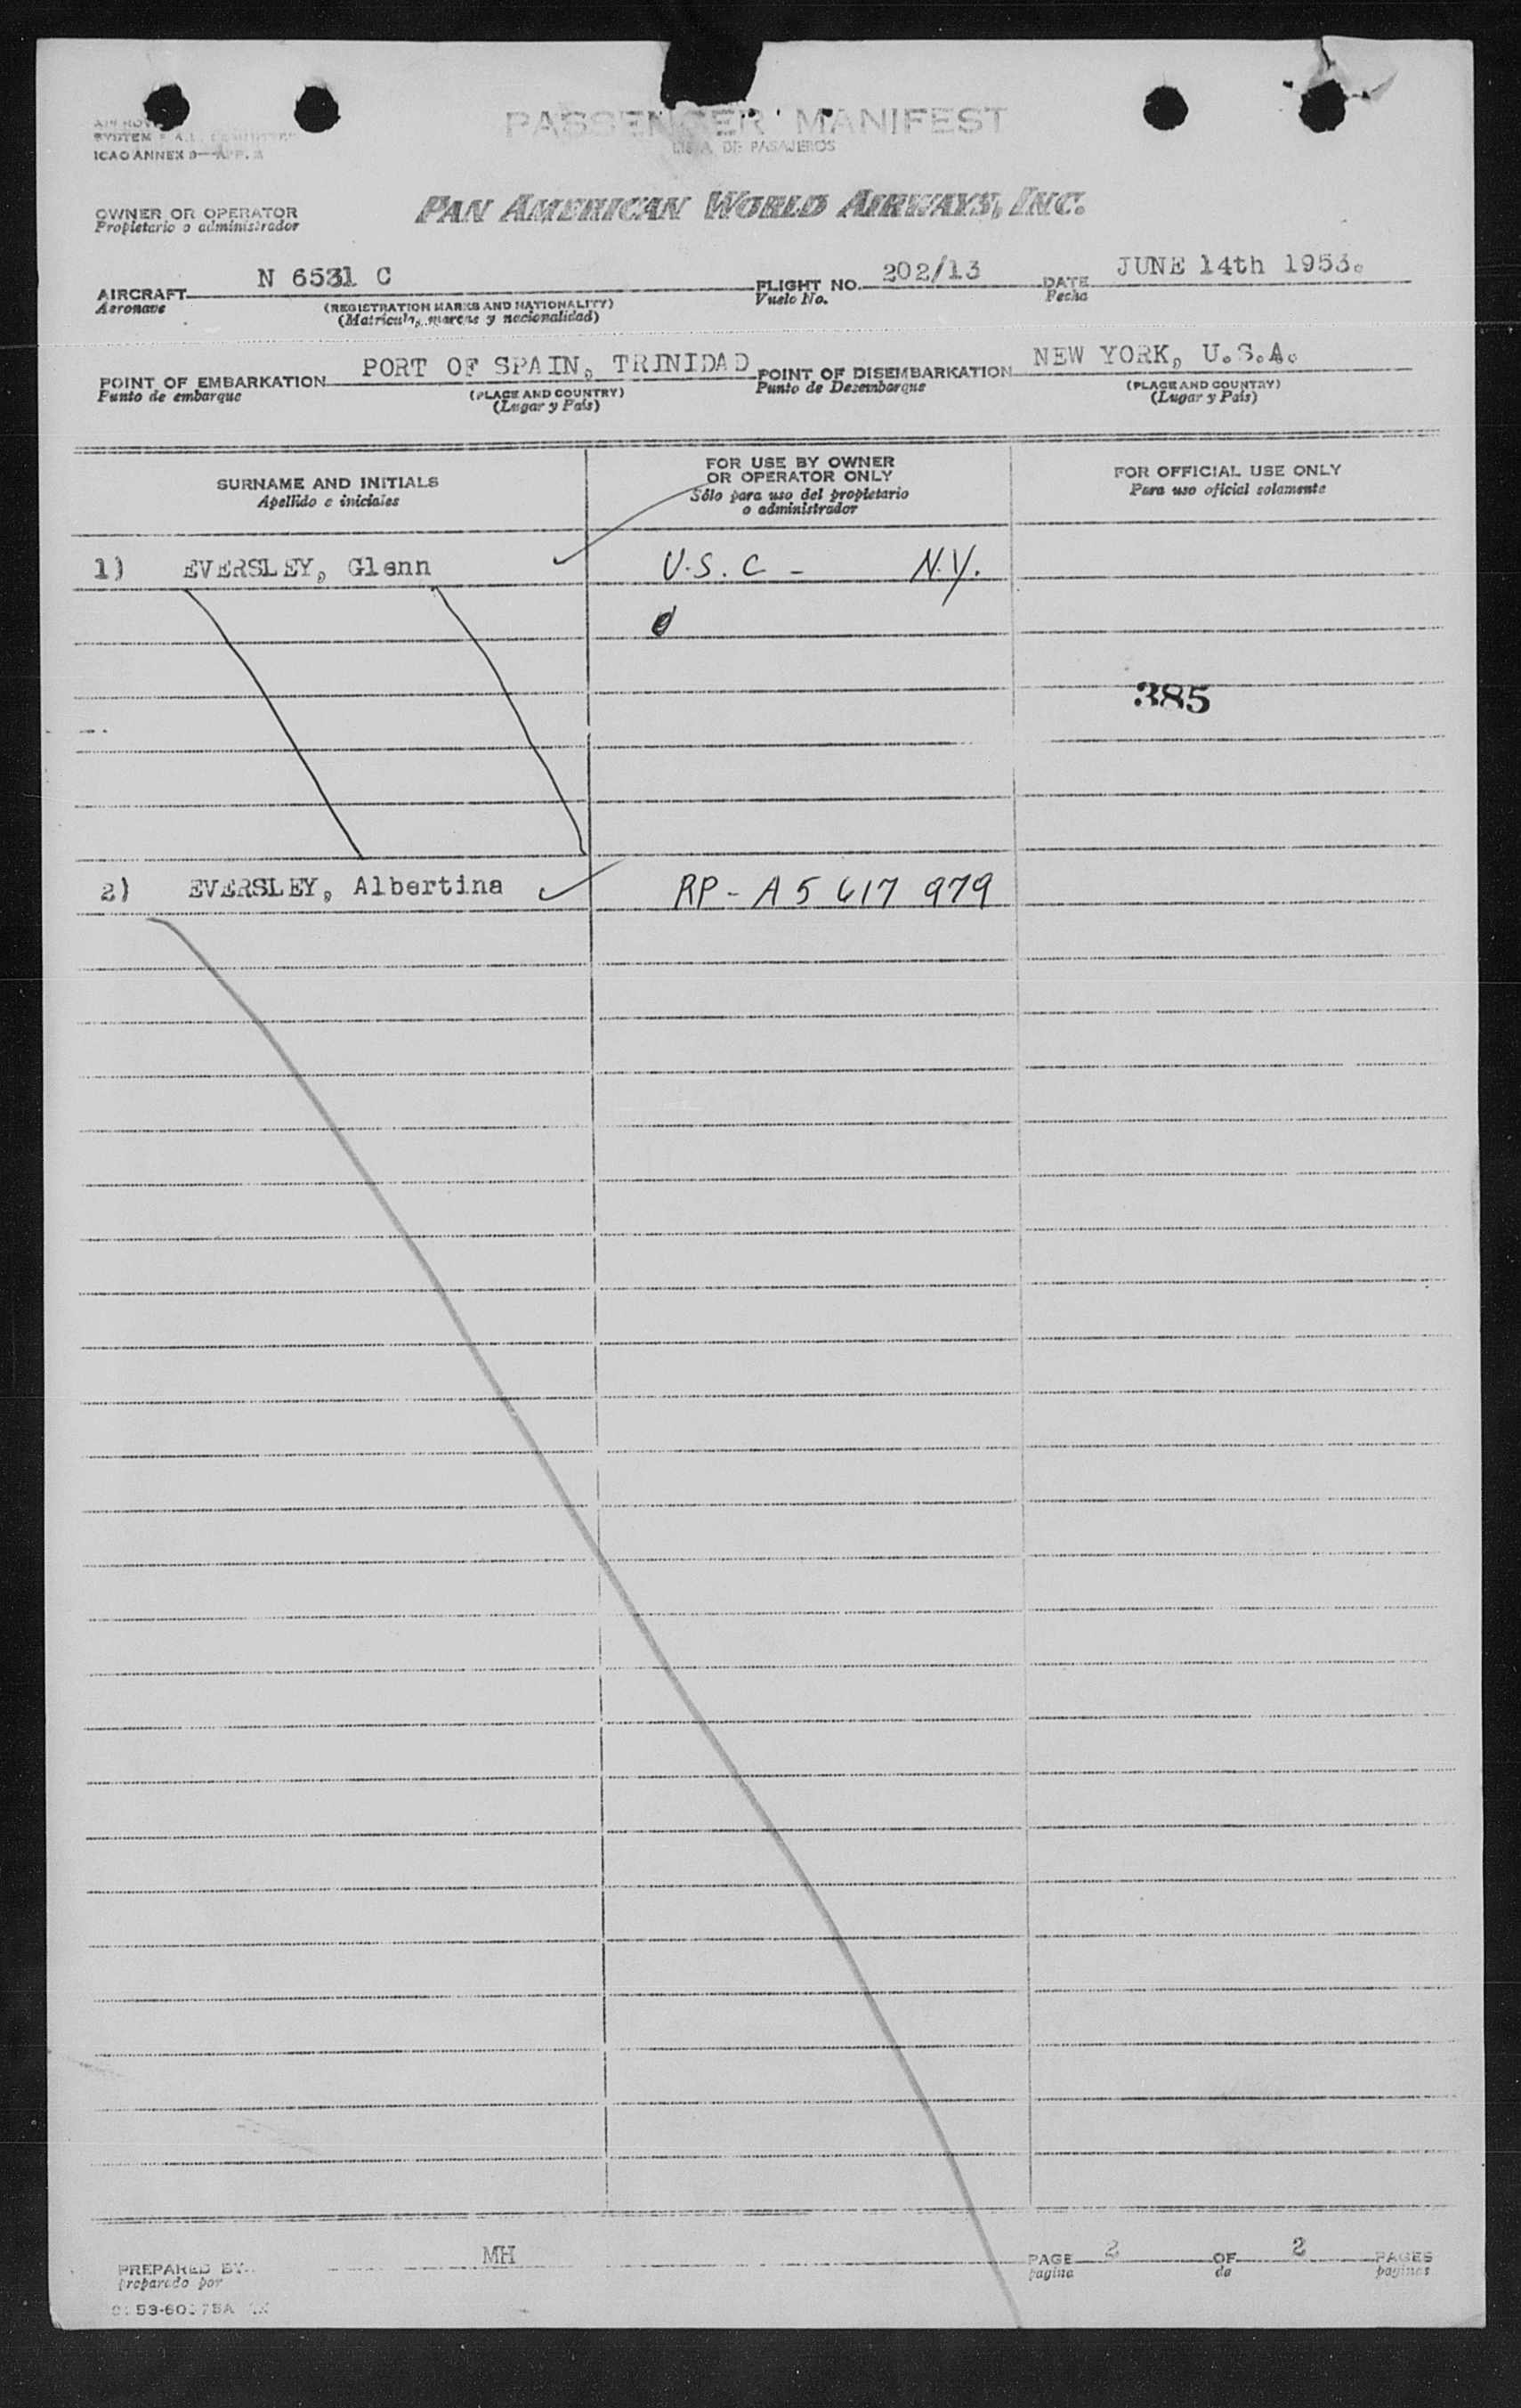 PASSENGER MANIFEST
LISTA DE PASAJEROS
SYSTEM
ICAO ANNEX 9—APP.
OWNER OR OPERATOR
Propietario o administrador
PAN AMERICAN WORLD AIRWAYS, INC.
AIRCRAFT N 6531 C FLIGHT NO. 202/13 DATE JUNE 14th 1953.
Aeronave (REGISTRATION MARKS AND NATIONALITY) Vuelo No. Fecha
(Matricula, marcas y nacionalidad)
POINT OF EMBARKATION PORT OF SPAIN, TRINIDAD POINT OF DISEMBARKATION NEW YORK, U.S.A.
Punto de embarque (PLACE AND COUNTRY) Punto de Desembarque (PLACE AND COUNTRY)
(Lugar y País) (Lugar y País)
SURNAME AND INITIALS
Apellido e iniciales
FOR USE BY OWNER
OR OPERATOR ONLY
Sólo para uso del propietario
o administrador
FOR OFFICIAL USE ONLY
Para uso oficial solamente
1) EVERSLEY, Glenn U.S.C - N.Y.
385
2) EVERSLEY, Albertina RP - A5 617 979
PREPARED BY MH PAGE 2 OF 2 PAGES
preparado por pagina de paginas